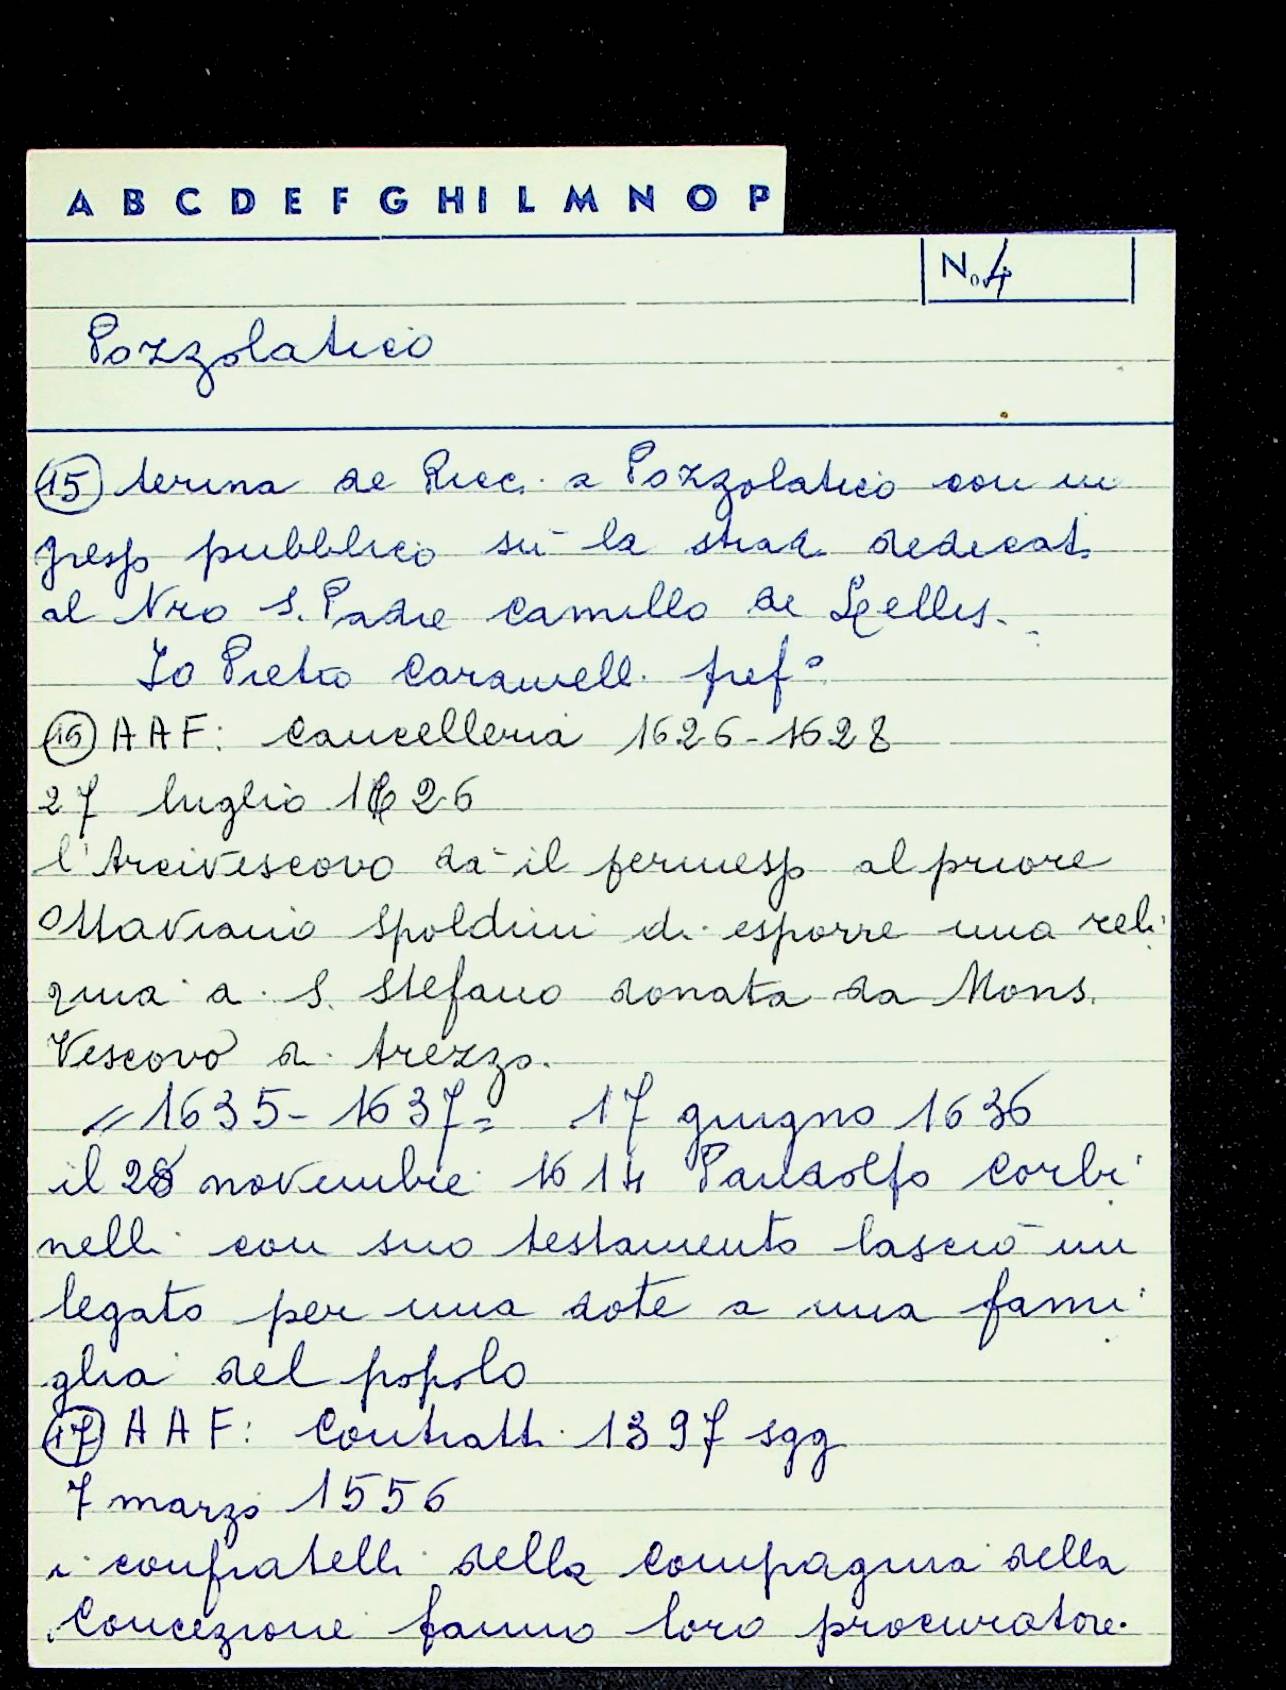 A B C D E F G H I L M N O P
N. 4
Pozzolatico
15 terina de Ricc. a Pozzolatico con in
gresso pubblico sù la strad. dedicat.
al Nro S. Padre Camillo de Lellis.
Io Pietro Caramelli pref°.
16 AAF: Cancelleria 1626-1628
27 luglio 1626
l'Arcivescovo dà il permesso al priore
Ottaviano Spoldini di esporre una reli
quia a S. Stefano donata da Mons.
Vescovo di Arezzo.
= 1635-1637 = 17 giugno 1636
il 28 novembre 1614 Pandolfo Corbi
nelli con suo testamento lasciò un
legato per una dote a una fami
glia del popolo
17 AAF: Contratti 1397 sgg
7 marzo 1556
i confratelli della Compagnia della
Concezione fanno loro procuratore